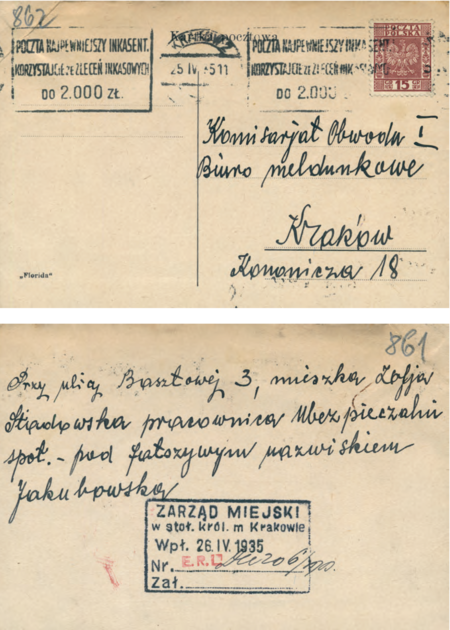 862
Kartka pocztowa
POCZTA NAJPEWNIEJSZY INKASENT.
KORZYSTAJCIE ZE ZLECEŃ INKASOWYCH
DO 2.000 ZŁ.
25 IV 35 11
POCZTA NAJPEWNIEJSZY INKASENT.
KORZYSTAJCIE ZE ZLECEŃ INKASOWYCH
DO 2.000
POCZTA
POLSKA
15
Komisarjat Obwodu I
Biuro meldunkowe
Kraków
Kanonicza 18
„Florida"
861
Przy ulicy Basztowej 3, mieszka Zofja
pracownica Ubezpieczalni
społ. - pod fałszywym nazwiskiem
Jakubowska
ZARZĄD MIEJSKI
w stoł. król. m Krakowie
Wpł. 26. IV. 1935
Nr. E.R.
Zał.